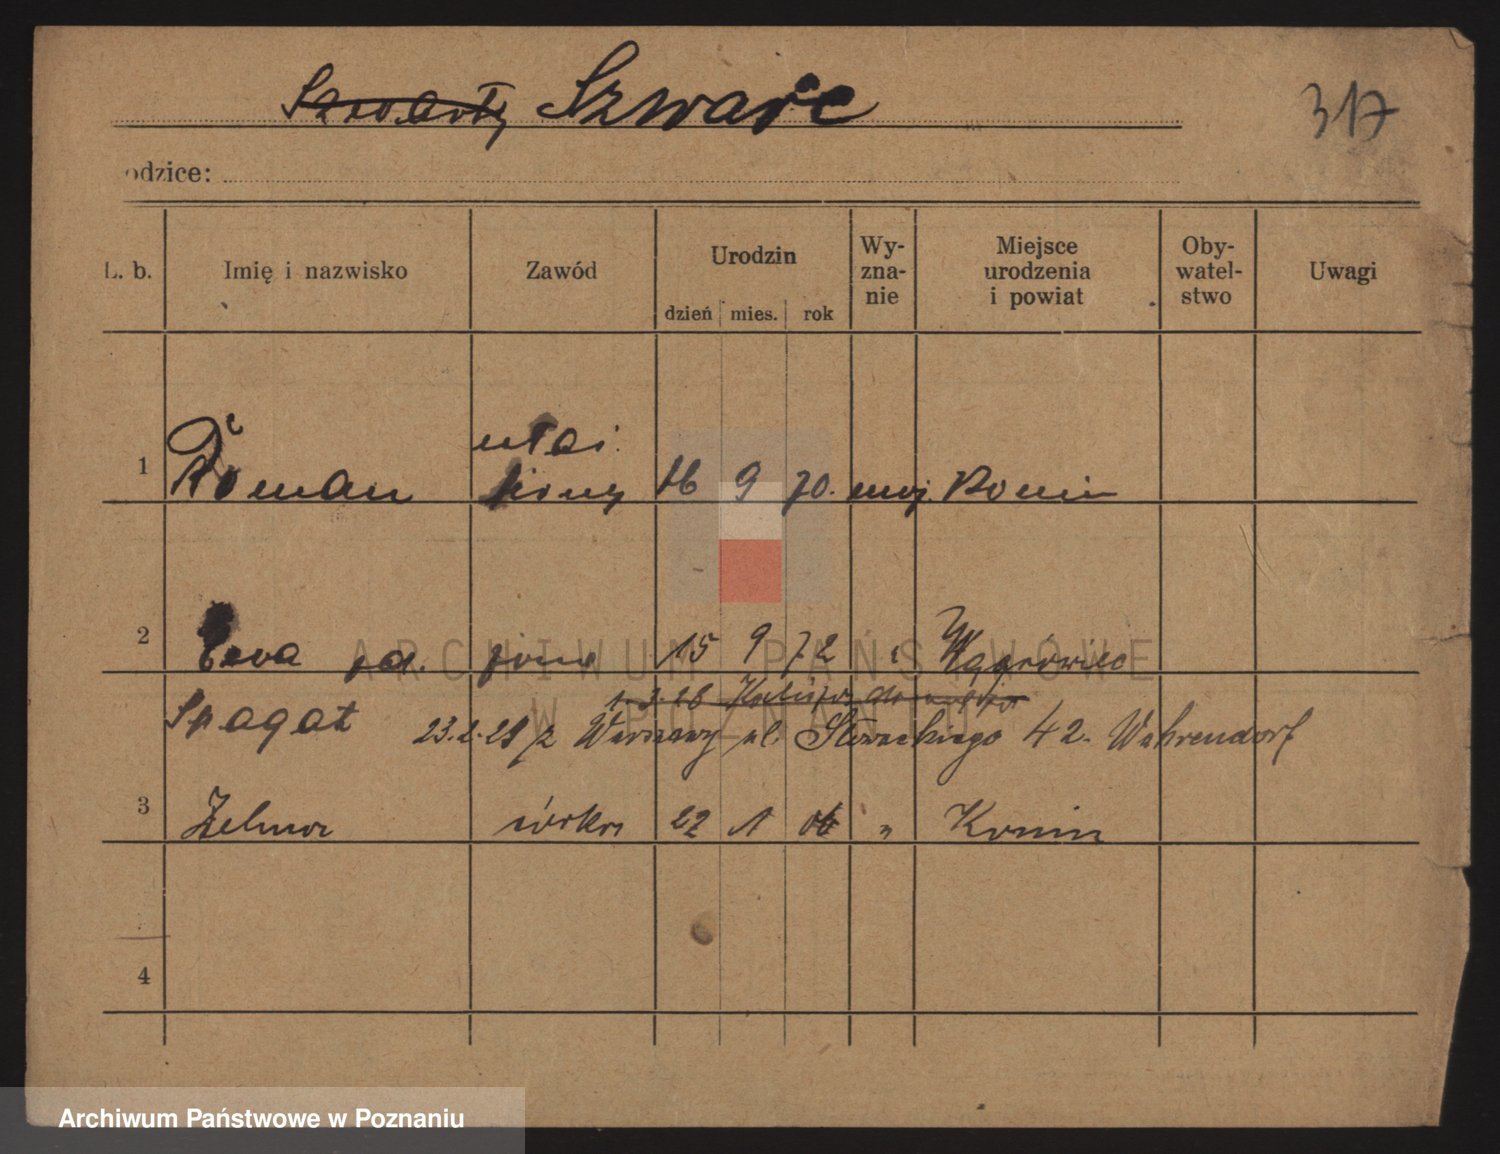 Szwarc
317
odzice:
L. b. Imię i nazwisko Zawód Urodzin dzień mies. rok Wy-zna-nie Miejsce urodzenia i powiat Oby-watel-stwo Uwagi
1 Roman 16 9 70. moj. Konin
2 Ewa żona 15 9 72 Wągrówiec
Spagat 23.2.28 z Warszawy ul. Słowackiego 42. Wahrendorf
3 Zelma córka 22 1 06 " Konin
4
ARCHIWUM PAŃSTWOWE
W POZNANIU
Archiwum Państwowe w Poznaniu